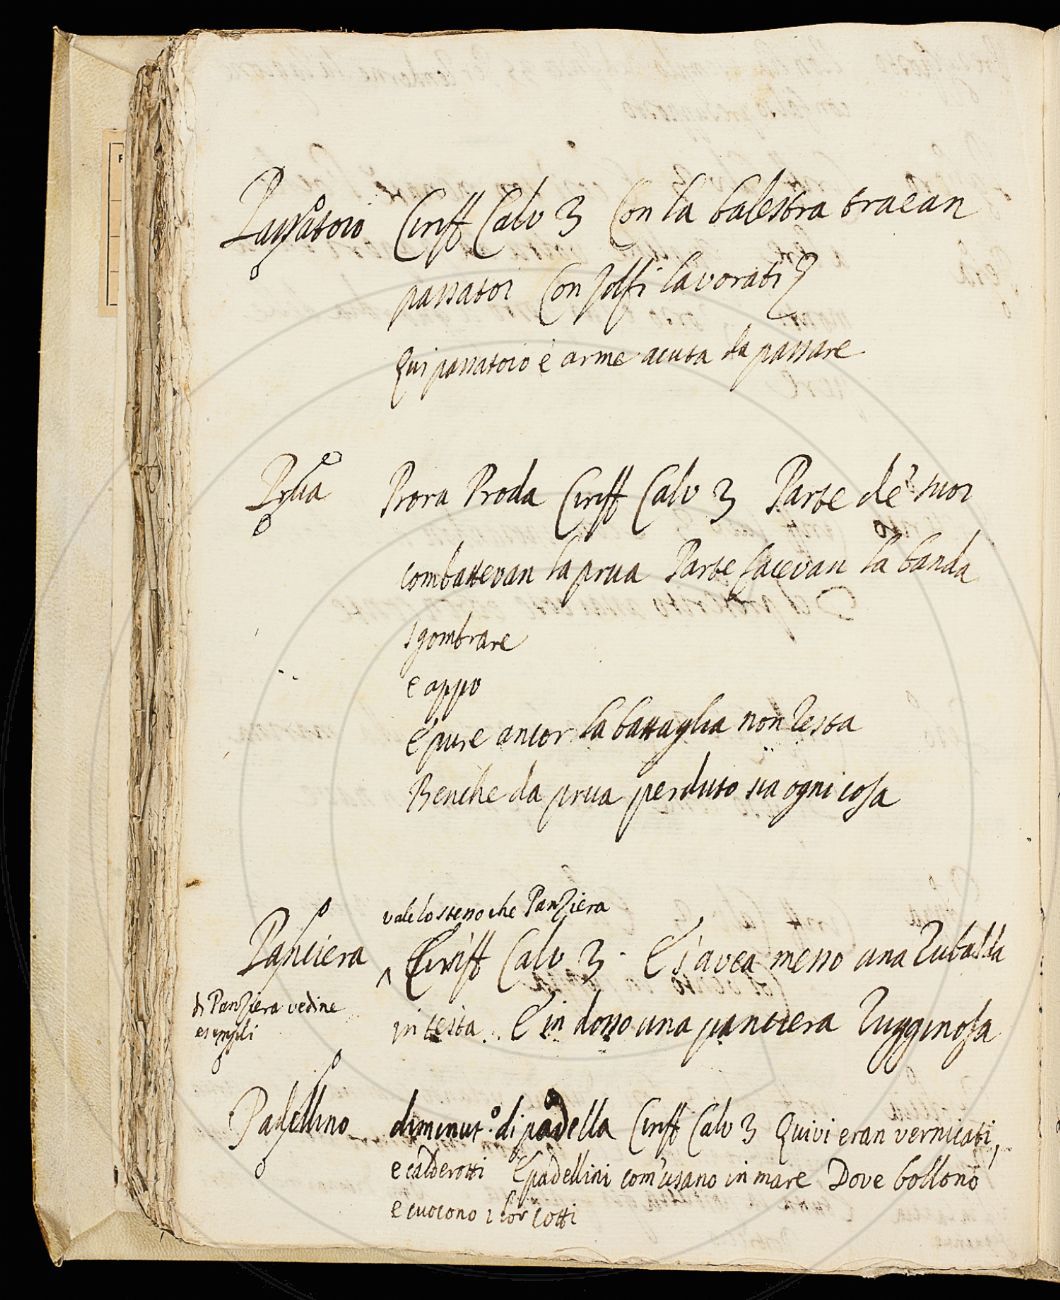 Passatoio Ciriff Calv 3 Con la balestra traean
passatoi Con solfi lavorati
Qui passatoio è arme acuta da passare
Prua Prora Proda Ciriff Calv 3 Parte de' suoi
combattevan la prua Parte facevan la banda
sgombrare
e appo
E pure ancor la battaglia non resta
Benche da prua perduto sia ogni cosa
vale lo stesso che Panziera
Panciera Ciriff Calv 3. E s'avea messo una Rubalda
di Panziera vedine
esempli
in testa.. E in dosso una panciera Rugginosa
Padellino diminut.o di padella Ciriff Calv 3 Quivi eran vernicati,
e calderotti E padellini com'usano in mare Dove bollono
e cuocono i lor cotti